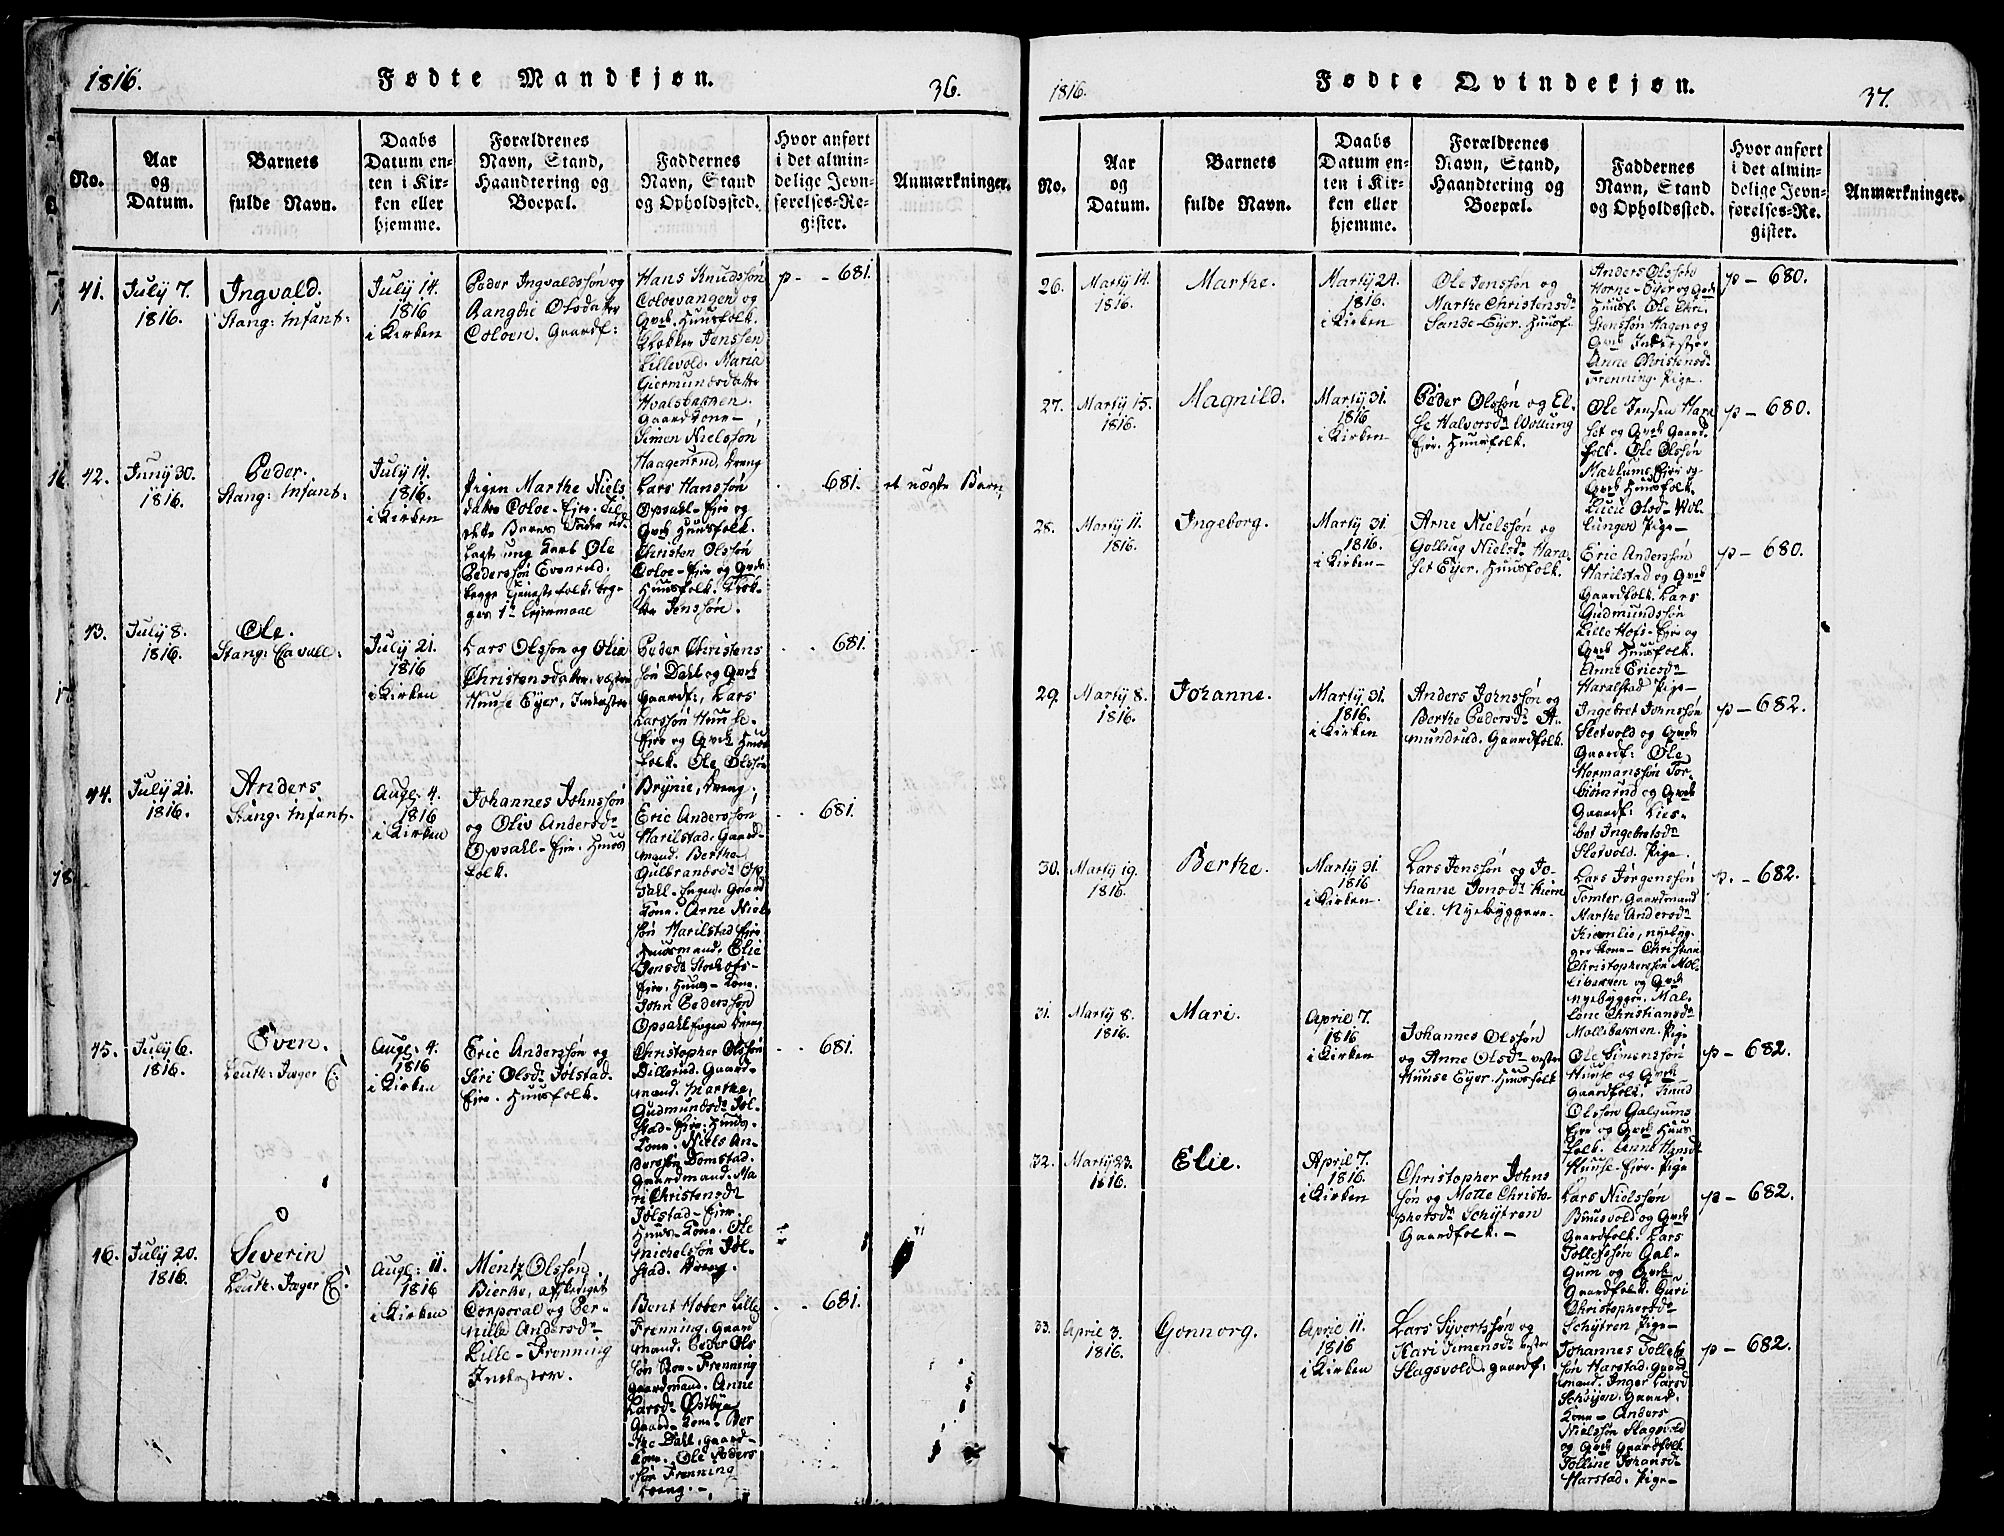 1816.
Fødte Mandkjøn.
36.
No.
Aar
og
Datum.
Barnets
fulde Navn.
Daabs
Datum en-
ten i Kir-
ken eller
hjemme.
Forældrenes
Navn, Stand,
Haandtering og
Boepæl.
Faddernes
Navn, Stand
og Opholdssted.
Hvor anført
i det almin-
delige Jevn-
førelses-Re-
gister.
Anmærkninger.
41.
July 7.
1816.
Ingvald.
Stang: Infant:
July 14.
1816
i Kirken
Peder Ingvaldssøn og
Ranghi Olsdatter
Coloen. Gaardf:
Hans Knudssøn
Coloevangen og
Qvik Huusfolk.
Klokker Jenssen
Lillevold. Maria
Giermundsdatter
Hvalsbakken.
Gaardkone-
Simen Nielssøn
Haagenrud, Dreng
p- - 681.
42.
Juny 30.
1816.
Peder.
Stang: Infant:
July 14.
1816.
i Kirken
Pigen Marthe Niels
datter Coloe- Eje. Til
dette Barns Fader ud-
lagt ung Karl Ole
Pederssøn Evenrud.
begge Tienestefolk. beg-
ges 1te Lejermaal
Lars Hanssøn
Opsahl- Eje og
Qvik Huusfolk.
Christen Olssøn
Coloe- Eje og Qvik
Huusfolk. Klok-
ker Jenssøn.
681.
et uægte Barn
43.
July 8.
1816.
Ole.
Stang: Cavall:
July 21.
1816
i Kirken
Lars Olssøn og Olia
Christensdatter, vestre
Huuse Eyer, Inderster
Peder Christens
søn Dahl og Qvik
Gaardf:, Lars
Larssøn Huuse-
Eje og Qvik Huus
folk. Ole Olssøn
Brynie, Dreng,
681.
44.
July 21.
1816.
Anders
Stang: Infant:
Aug: 4.
1816
i Kirken
Johannes Johnssøn
og Oliv Andersdr
Opsahl- Eje. Huus
folk.
Eric Anderssøn
Harilstad. Gaard-
mand. Berthe
Gulbrandsdr Op
sahl- Ingen Gaard
kone. Arne Niels
søn Harilstad Eje
Huusmand. Elie
Jensdr Storhofs-
Eje. Huus- Kone.
John Pederssøn
Opsahl ungen Dreng
681.
45.
July 6.
1816.
Even.
Leuth: Jæger C:
Aug: 4.
1816
i Kirken
Eric Anderssøn og
Siri Olsdr Jølstad.
Eje. Huusfolk.
Christopher Olssøn
Dillerud. Gaard-
mand. Marthe
Gudmundsdr Jøl-
stad- Eje. Huus-
Kone. Niels An-
derssøn Domstad.
Gaardmand. Ma
ri Christensdr
Jølstad- Eje.
Huus- Kone. Ole
Michelssøn Jøl-
stad. Dreng.
681.
46.
July 20.
1816.
Severin
Leuth: Jæger C:
Aug: 11.
1816
i Kirken
Mentz Olssøn
Bierke, afskediget
Corporal og Per-
nille Andersdr
Lille- Frenning
Inderster.
Bent Hober Lille
Frenning. Gaard
mand. Peder Ols
søn Boe- Frenning
Gaardmand. Anne
Larsdr Østbye
Gaard- Kone. Ber
the Dahl, gaard-
kone. Ole Peders
søn Frenning
Dreng.-
681.
1816.
Fødte Qvindekjøn.
37.
No.
Aar
og
Datum.
Barnets
fulde Navn.
Daabs
Datum en-
ten i Kir-
ken eller
hjemme.
Forældrenes
Navn, Stand,
Haandtering og
Boepæl.
Faddernes
Navn, Stand
og Opholdssted.
Hvor anført
i det almin-
delige Jevn-
førelses-Re-
gister.
Anmærkninger.
26.
Marty 14.
1816.
Marthe.
Marty 24.
1816.
i Kirken
Ole Jenssøn og
Marthe Christensdr
Sande- Eyer. Huusf.
Anders Olssøn
Horne- Eyer og Qvik
Huusf. Ole Chri
stenssøn Hagen og
Qvik Inderster
Anne Christensdr
Frenning. Pige.
p - 680.
27.
Marty 15.
1816.
Magnild.
Marty 31.
1816
i Kirken
Peder Olssøn og El-
se Halvorsdr Wollung
Eje. Huusfolk.
Ole Jensen Hara
set og Qvik Gaard-
folk. Ole Olssøn
Mæhlums Eje og
Qvik Huusfolk.
Lucie Olsdr Wol-
lungen Pige-
p - 680.
28.
Marty 11.
1816.
Ingeborg.
Marty 31.
1816.
i Kirken-
Arne Nielssøn og
Gollaug Nielsdr Hara-
set Eyer. Huusfolk.
Eric Anderssøn
Harilstad og Qvik
Gaardfolk. Lars
Gudmundssøn
Lille Hofs- Eje og
Qvik Huusfolk.
Anne Ericsdr
Haralstad Pige-
p - 680.
29.
Marty 8.
1816.
Johanne.
Marty 31.
1816.
i Kirken
Anders Johnssøn og
Berthe Pedersdr A-
mundrud. Gaardfolk.
Ingebret Johnssøn
Sletvold og Qvik
Gaardf: Ole
Hermanssøn Tor-
biørnrud og Qvik
Gaardf: Lies-
bet Ingebretsdr
Sletvold. Pige.
p - 682.
30.
Marty 19.
1816.
Berthe.
Marty 31.
1816
i Kirken.
Lars Jenssøn og Jo-
hanne Jonsdr Kiem-
lie. Nyebyggere.
Lars Jørgenssøn
Tomter. Gaardmand
Marthe Andersdr
Kiemlie, nyebyg-
ger kone- Christian
Christopherssøn Mol-
libakken og Qvik
Nyebyggre. Mal-
lene Christiansdr
Mollibakken. Pige
p. - 682.
31.
Marty 8.
1816.
Mari.
April 7.
1816
i Kirken
Johannes Olssøn
og Anne Olsdr vestre
Huuse Eyer. Huusfolk
Ole Simenssøn
Huuse og Qvik
Gaardfolk. Knud
Olssøn Galgums
Eje og Qvik Huus
folk. Anne Hansdr
Huuse- Eje. Pige
p - 682.
32.
Marty 23.
1816.
Elie.
April 7.
1816.
i Kirken
Christopher Johns
søn og Mette Christo-
phersdr Schytren
Gaardfolk.-
Lars Nielssøn
Buusvold og Qvik
Gaardfolk. Lars
Tollefssøn Gal-
gum og Qvik
Gaardfolk. Guri
Christophersdr
Schytren Pige-
p - 682.
33.
April 3.
1816.
Gonnorg.
April 11.
1816
i Kirken
Lars Syvertssøn og
Kari Simensdr vestre
Slagsvold. gaardf.
Johannes Tollefs
søn Harstad. Gaard
mand. Inger Larsdr
Schøyen. Gaard
kone- Anders
Nielssøn Slagsvold
og Qvik Gaardfolk
Tolline Johansdr
Harstad. Pige-
p - 682.